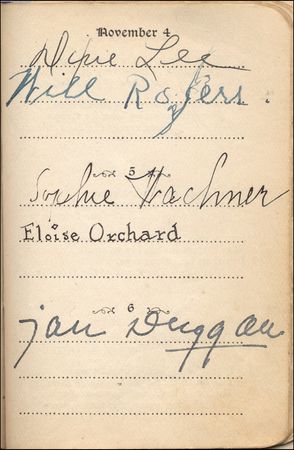 November 4
Dixie Lee
Will Rogers.
5
Sophie Wachner
Eloise Orchard
6
Jan Duggan